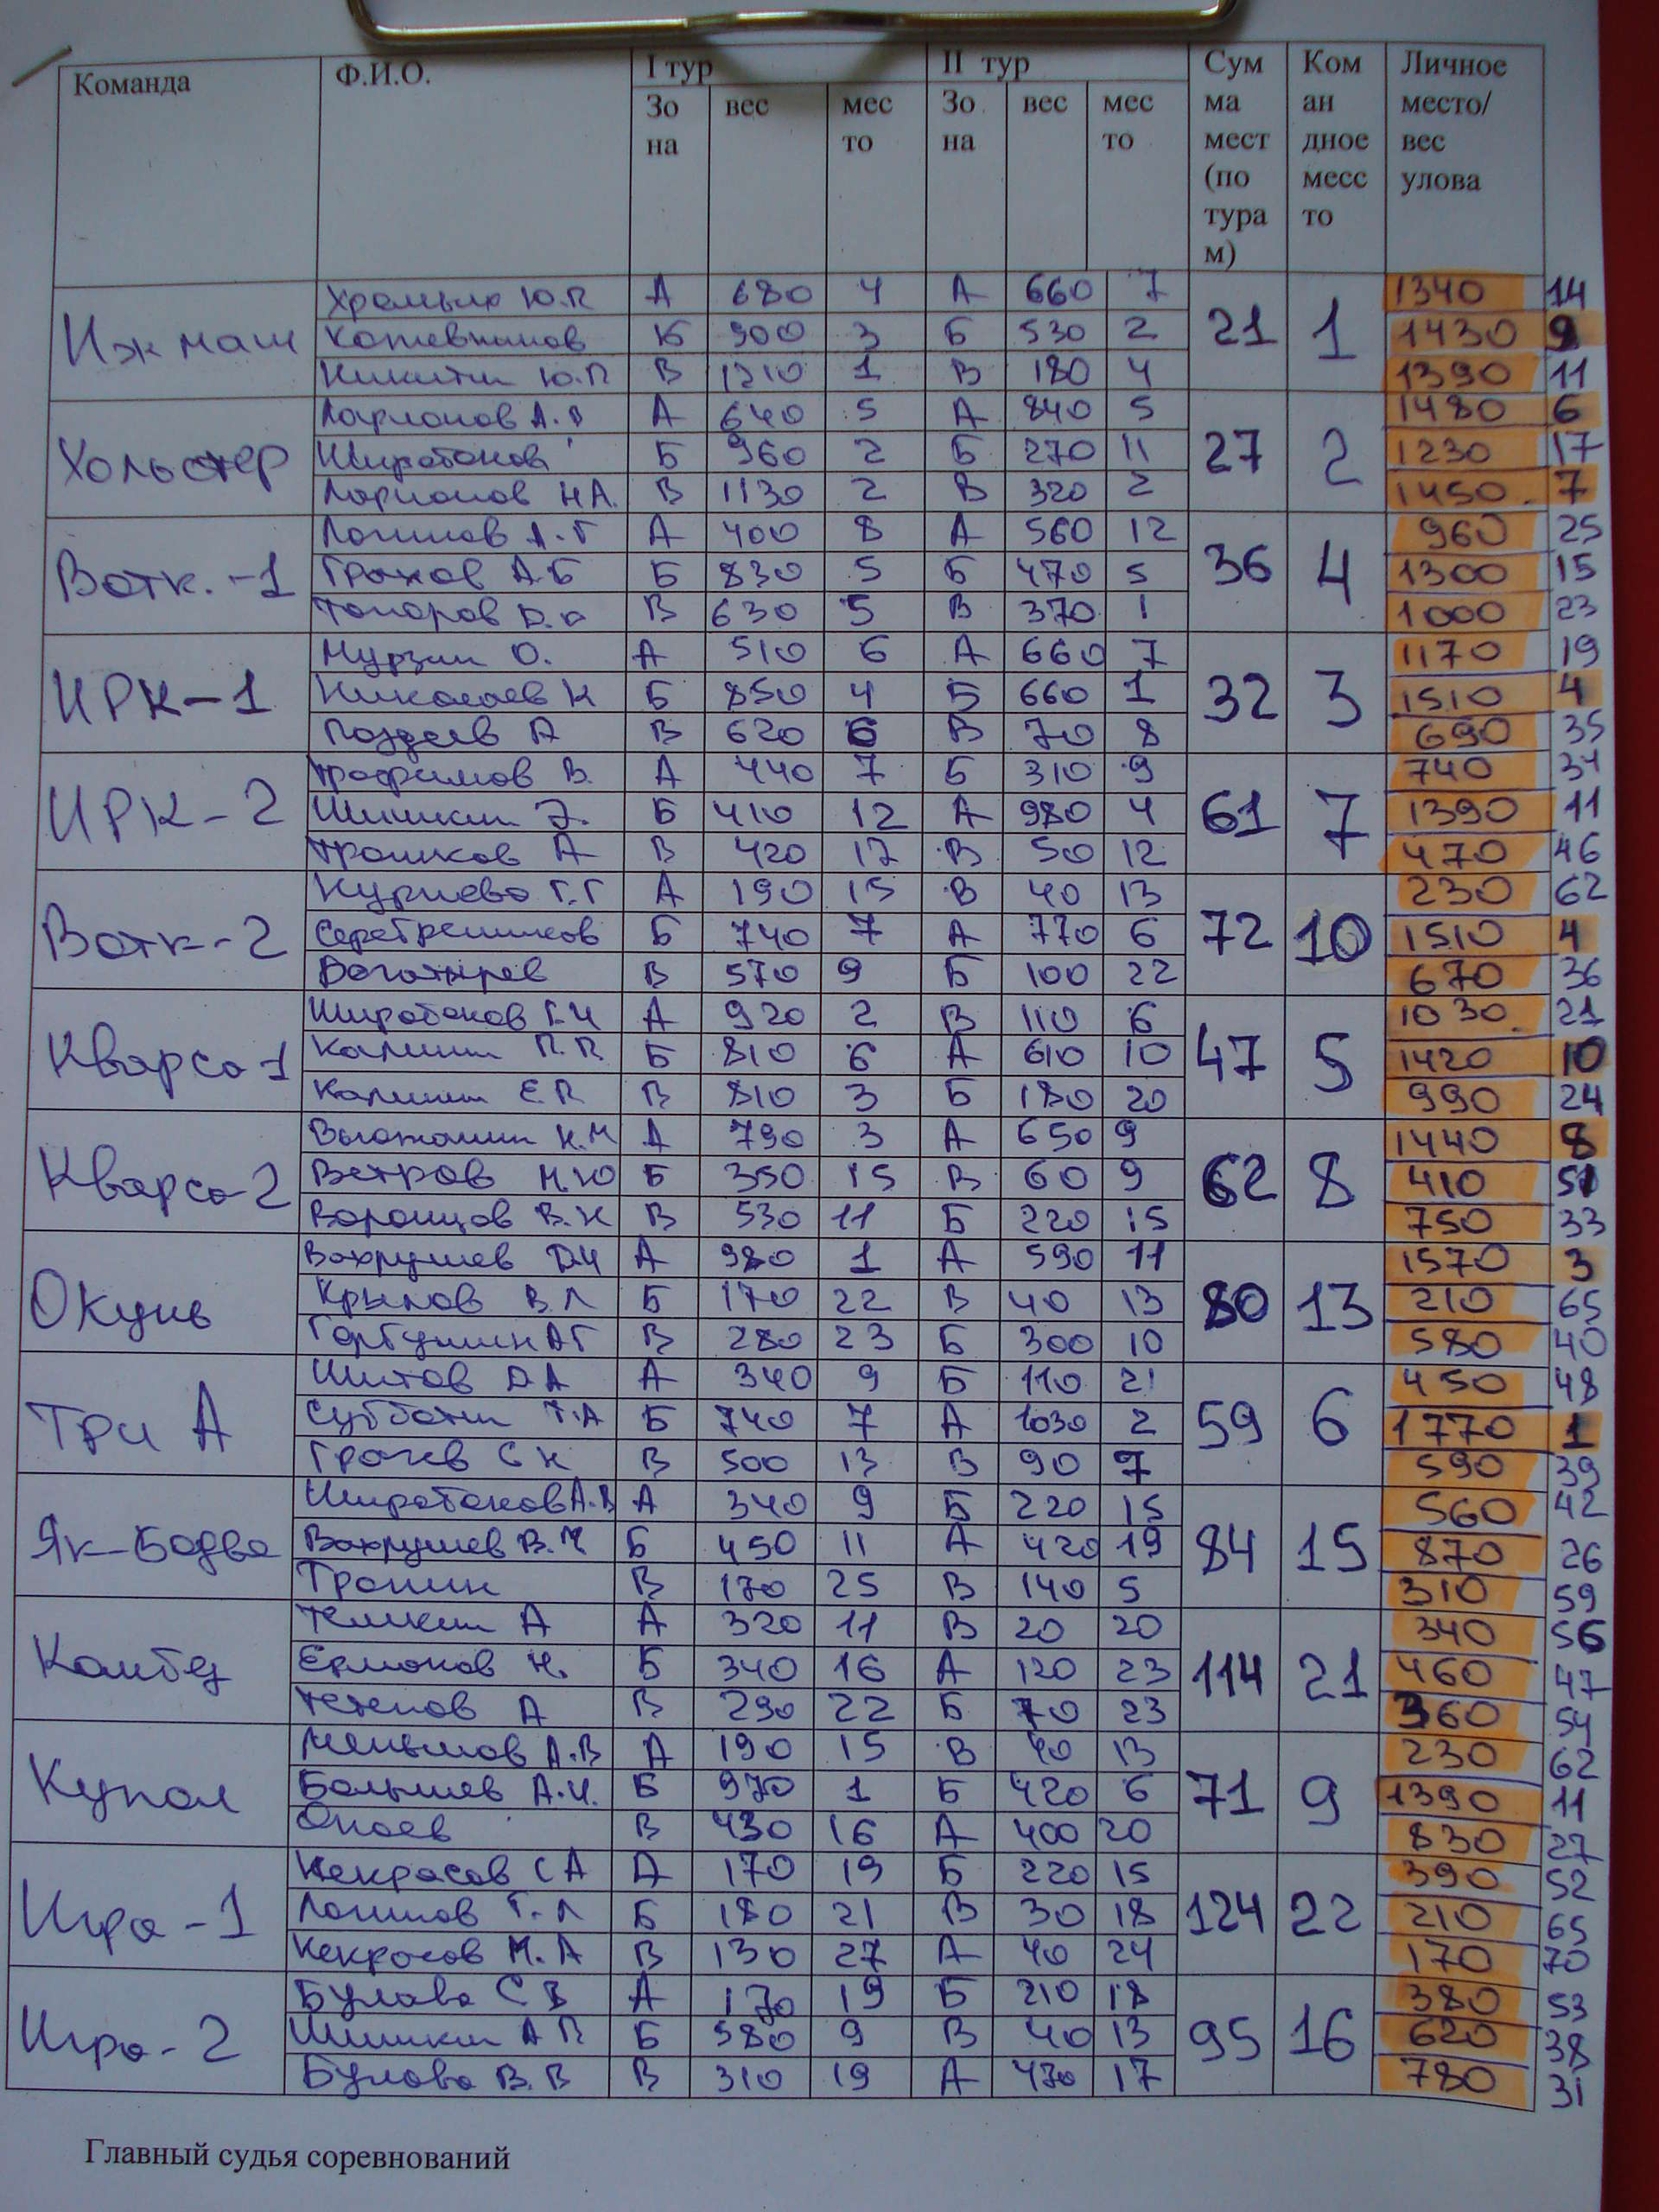 Команда Ф.И.О. I тур II тур Сум ма мест (по тура м) Ком ан дное месс то Личное место/ вес улова
Зо на вес мес то Зо на вес мес то
Ижмаш 21 1
Ю.П А 680 4 А 660 7 1340 14
Кожевников Б 900 3 Б 530 2 1430 9
Никитин Ю.П В 1210 1 В 180 4 1390 11
Хольстер 27 2
Ларионов А. А 640 5 А 840 5 1480 6
Широбоков Б 960 2 Б 270 11 1230 17
Ларионов Н.А. В 1130 2 В 320 2 1450 7
Вотк.-1 36 4
Логинов А.Г А 400 8 А 560 12 960 25
Грахов А.Б Б 830 5 Б 470 5 1300 15
Топоров В 630 5 В 370 1 1000 23
ИРК-1 32 3
Мурзин О. А 510 6 А 660 7 1170 19
Николаев Н Б 850 4 Б 660 1 1510 4
Поздеев А В 620 6 В 70 8 690 35
ИРК-2 61 7
Трофимов В. А 440 7 Б 310 9 740 34
Шишкин Э. Б 410 12 А 980 4 1390 11
Трошков А В 420 17 В 50 12 470 46
Вотк-2 72 10
Г.Г А 190 15 В 40 13 230 62
Серебренников Б 740 7 А 770 6 1510 4
Богатырев В 570 9 Б 100 22 670 36
Кварса-1 47 5
Широбоков Г.И А 920 2 В 110 6 1030 21
Калинин П.П. Б 810 6 А 610 10 1420 10
Калинин Е.П В 810 3 Б 180 20 990 24
Кварса-2 62 8
Н.М А 790 3 А 650 9 1440 8
Ветров Н.Ю Б 350 15 В 60 9 410 51
Воронцов В.Н В 530 11 Б 220 15 750 33
Окунь 80 13
Вахрушев Д.И А 980 1 А 590 11 1570 3
Крылов В.Л Б 170 22 В 40 13 210 65
Горбушин А.Г В 280 23 Б 300 10 580 40
Три А 59 6
Шитов Д.А А 340 9 Б 110 21 450 48
Субботин Т.А Б 740 7 А 1030 2 1770 1
Грачев С Н В 500 13 В 90 7 590 39
Як-Бодья 84 15
Широбоков А.В А 340 9 Б 220 15 560 42
Вахрушев В. Б 450 11 А 420 19 870 26
Тронин В 170 25 В 140 5 310 59
Камбуз 114 21
Телицин А А 320 11 В 20 20 340 56
Ермаков Н. Б 340 16 А 120 23 460 47
А В 290 22 Б 70 23 360 54
Купол 71 9
Меньшов А.В А 190 15 В 40 13 230 62
Балышев А.И. Б 970 1 Б 420 6 1390 11
В 430 16 А 400 20 830 27
Игра-1 124 22
Некрасов С А А 170 19 Б 220 15 390 52
Логинов Г.Л Б 180 21 В 30 18 210 65
Некрасов М.А В 130 27 А 40 24 170 70
Игра-2 95 16
Булава С В А 170 19 Б 210 18 380 53
Шишкин А П Б 580 9 В 40 13 620 38
Булава В.В В 310 19 А 470 17 780 31
Главный судья соревнований